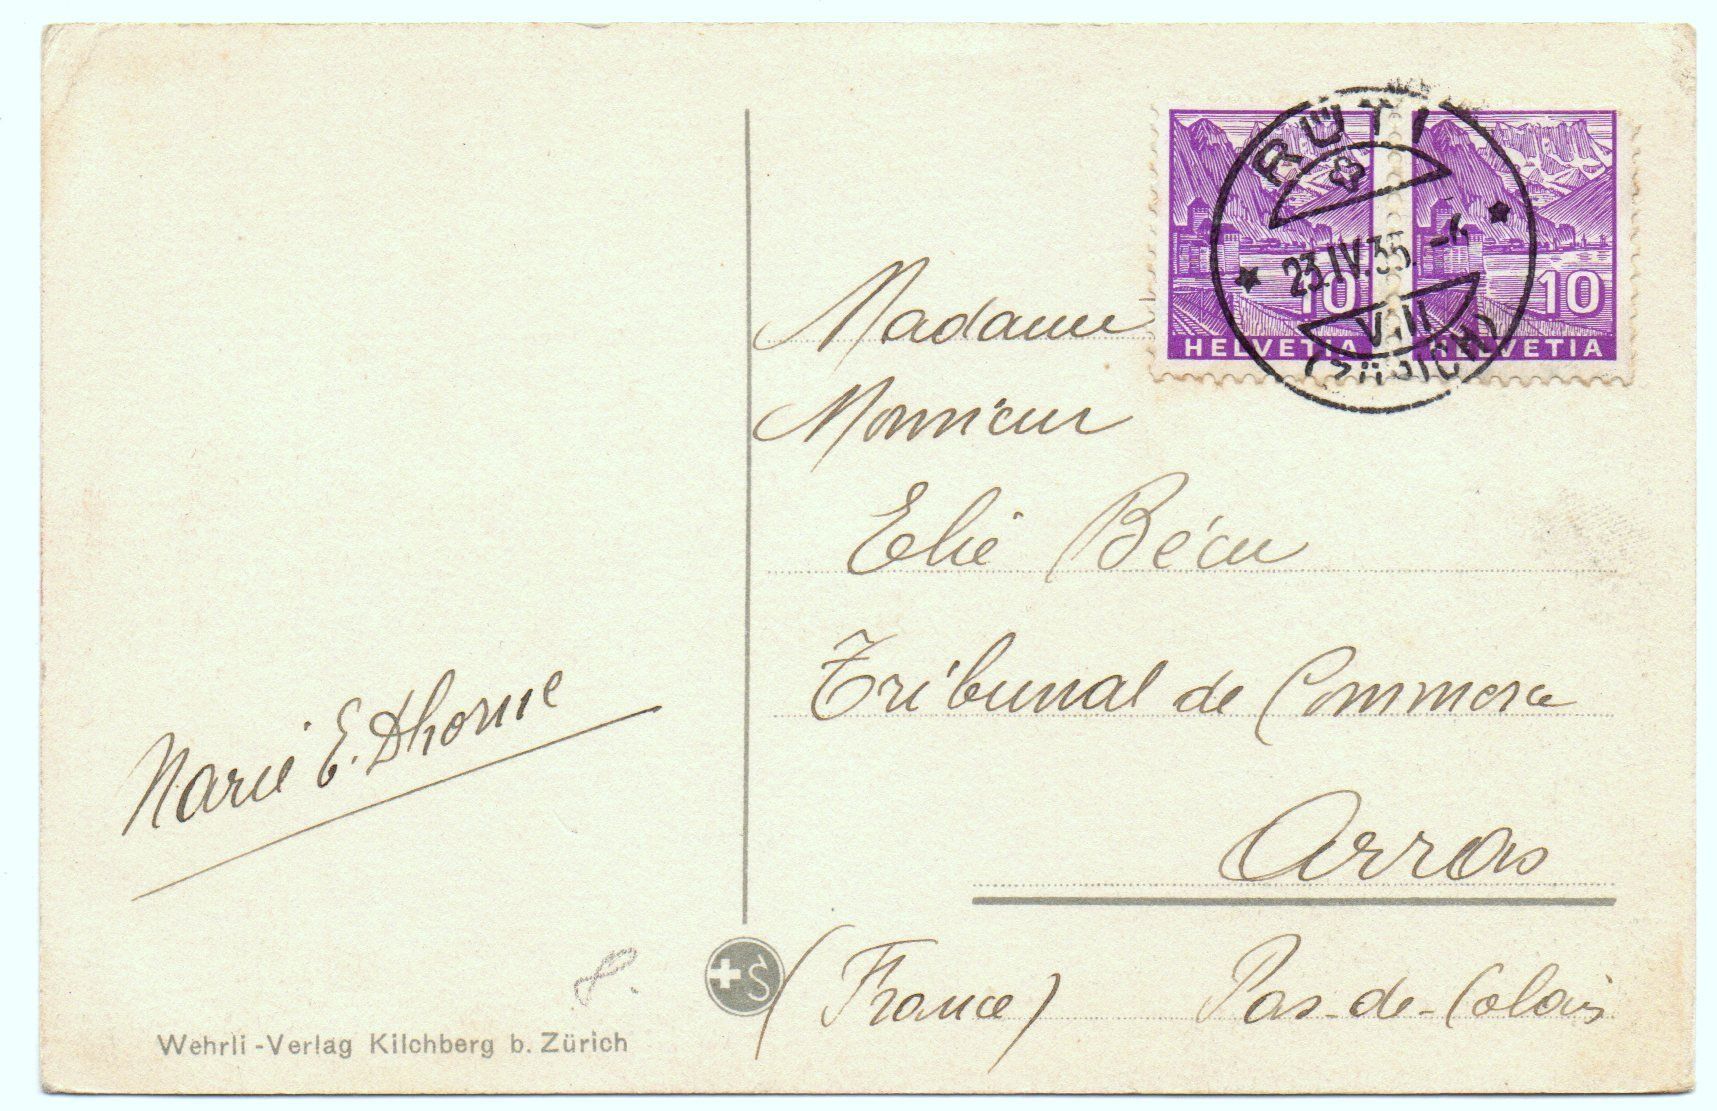 RÜTI
23.IV.35.
VIII
(ZÜRICH)
10
HELVETIA
10
HELVETIA
Madame
Monsieur
Elie Bécu
Tribunal de Commerce
Arras
(France) Pas-de-Calais
Marie E. Dhorne
+S
Wehrli-Verlag Kilchberg b. Zürich